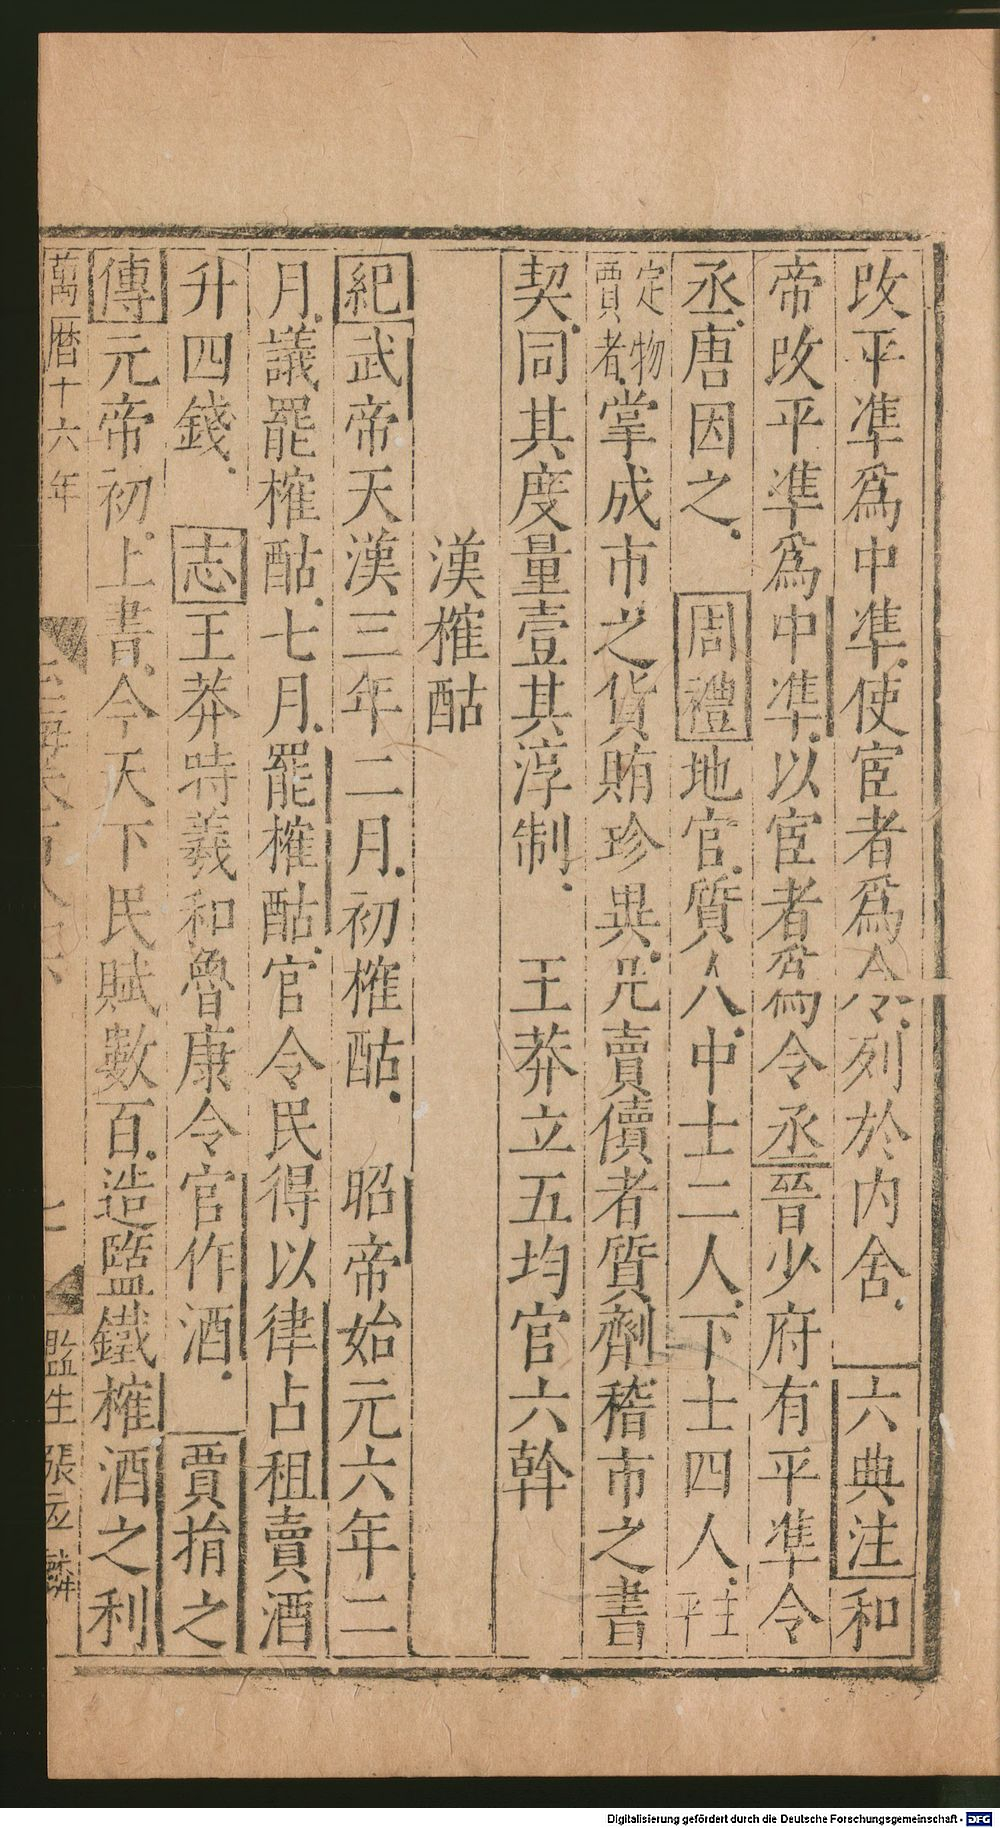 改平準爲中準使宦者爲令列於内舍　六典注和
帝改平準爲中準以宦者爲令丞晉少府有平準令
丞唐因之　周禮地官質人中士二人下士四人主平
定物賈者掌成市之貨賄珍異凡賣儥者質劑稽市之書
契同其度量壹其淳制　王莽立五均官六幹
漢榷酤
紀武帝天漢三年二月初榷酤　昭帝始元六年二
月議罷榷酤七月罷榷酤官令民得以律占租賣酒
升四錢　志王莽時羲和魯康令官作酒　賈捐之
傳元帝初上書今天下民賦數百造鹽鐵榷酒之利
萬曆十六年
七
監生張立麟
Digitalisierung gefördert durch die Deutsche Forschungsgemeinschaft - DFG